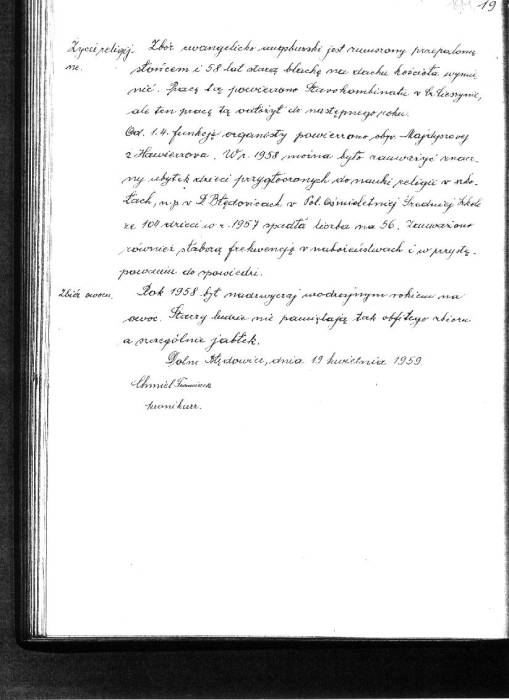 19
Życie religij- Zbór ewangelicko augsburski jest zmuszony przepaloną
ne. słońcem i 58 lat starą blachę na dachu kościoła wymie
nić. Pracę tę powierzono Stavokombinatu v Cz. Cieszynie,
ale ten pracę tą odłożył do następnego roku.
Od 1.4. funkcję organisty powierzono obyw. Majdyszovej
z Hawierzowa. W r. 1958 można było zauważyć znacz-
ny ubytek dzieci przygłoszonych do nauki religii v szko-
łach, n.p. v D. Błędowicach v Pol. Ośmioletniej Średniej Szkole
ze 104 dzieci w r. 1957 spadła liczba na 56. Zauważono
również słaborą frekwencję v nabożeństwach i w przystę-
powaniu do spowiedzi.
Zbiór owocu. Rok 1958 był nadzwyczaj urodzajnym rokiem na
owoc. Starzy ludzie nie pamiętają tak obfitego zbioru
a szczególnie jabłek.
Dolne Błędowice, dnia 19 kwietnia 1959.
Chmiel Franciszek
kronikarz.